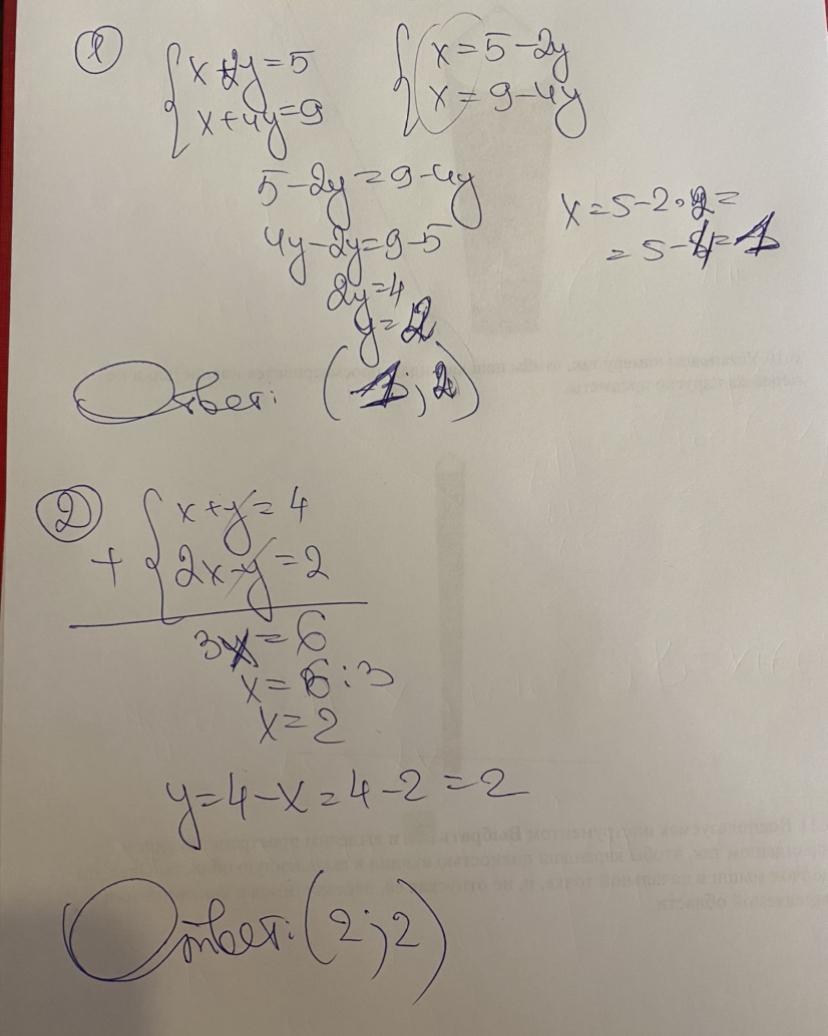 1
x+2y=5
x+4y=9
x=5-2y
x=9-4y
5-2y=9-4y
4y-2y=9-5
2y=4
y=2
x=5-2·2=
=5-4=1
Ответ: (1;2)
2
x+y=4
+
2x-y=2
3x=6
x=6:3
x=2
y=4-x=4-2=2
Ответ: (2;2)